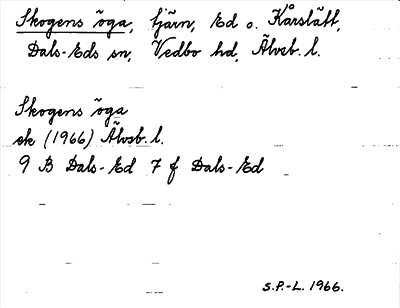 Skogens öga, tjärn, Ed o. Kårslätt,
Dals-Eds sn, Vedbo hd, Älvsb. l.
Skogens öga
ek (1966) Älvsb. l.
9 B Dals-Ed 7 f Dals-Ed
S.P.-L. 1966.